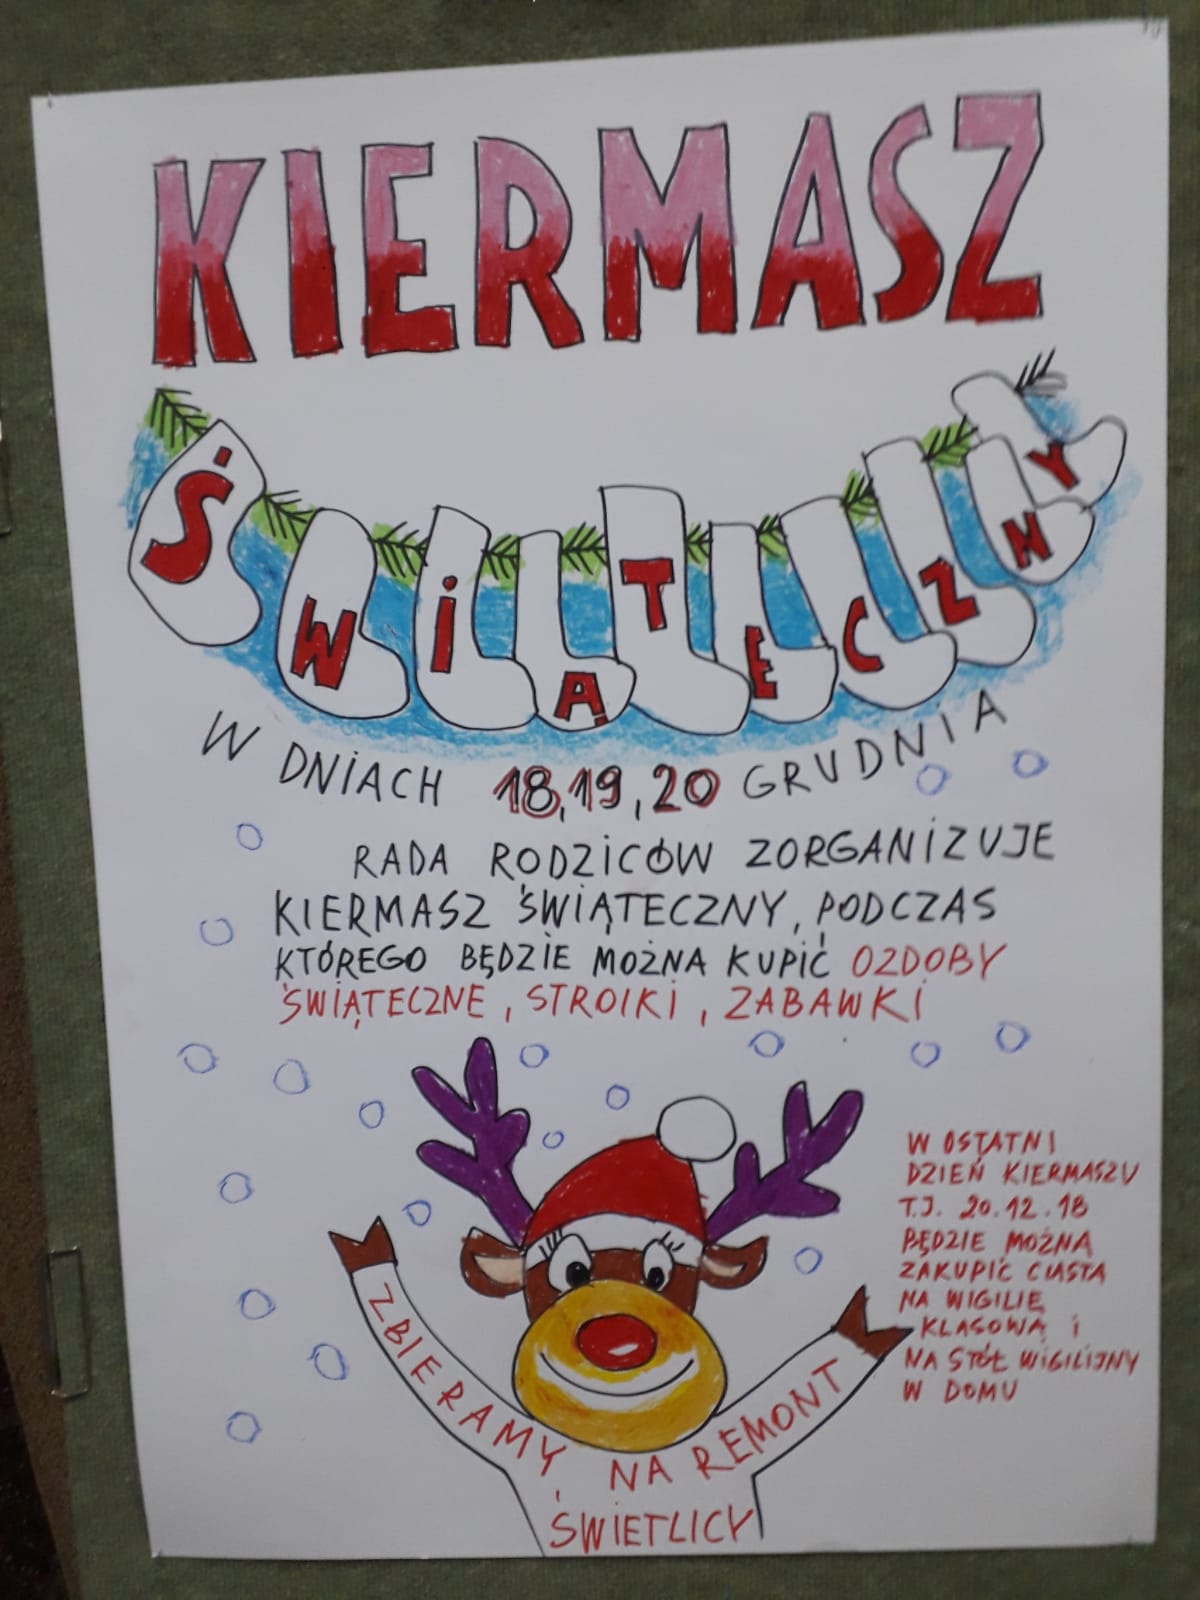 KIERMASZ
ŚWIĄTECZNY
W DNIACH 18, 19, 20 GRUDNIA
RADA RODZICÓW ZORGANIZUJE
KIERMASZ ŚWIĄTECZNY, PODCZAS
KTÓREGO BĘDZIE MOŻNA KUPIĆ OZDOBY
ŚWIĄTECZNE, STROIKI, ZABAWKI
W OSTATNI
DZIEŃ KIERMASZU
T.J. 20.12.18
BĘDZIE MOŻNA
ZAKUPIĆ CIASTA
NA WIGILIĘ
KLASOWĄ i
NA STÓŁ WIGILIJNY
W DOMU
ZBIERAMY NA REMONT
ŚWIETLICY